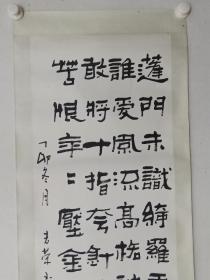 蓬门未識綺羅
誰爱風流高格
敢將十指夸針
苦恨年〻壓金
丁卯冬月